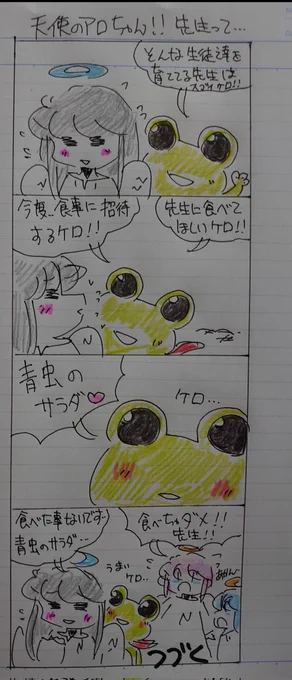 天使のアロちゃん!! 先生って…
そんな生徒達を
育ててる先生は
スゴイケロ!!
今度、食事に招待
するケロ!!
先生に食べて
ほしいケロ!!
青虫の
サラダ♡
ケロ…
食べちゃダメ!!
先生!!
食べた事ないです…
青虫のサラダ…
うまい
ケロ…
つづく